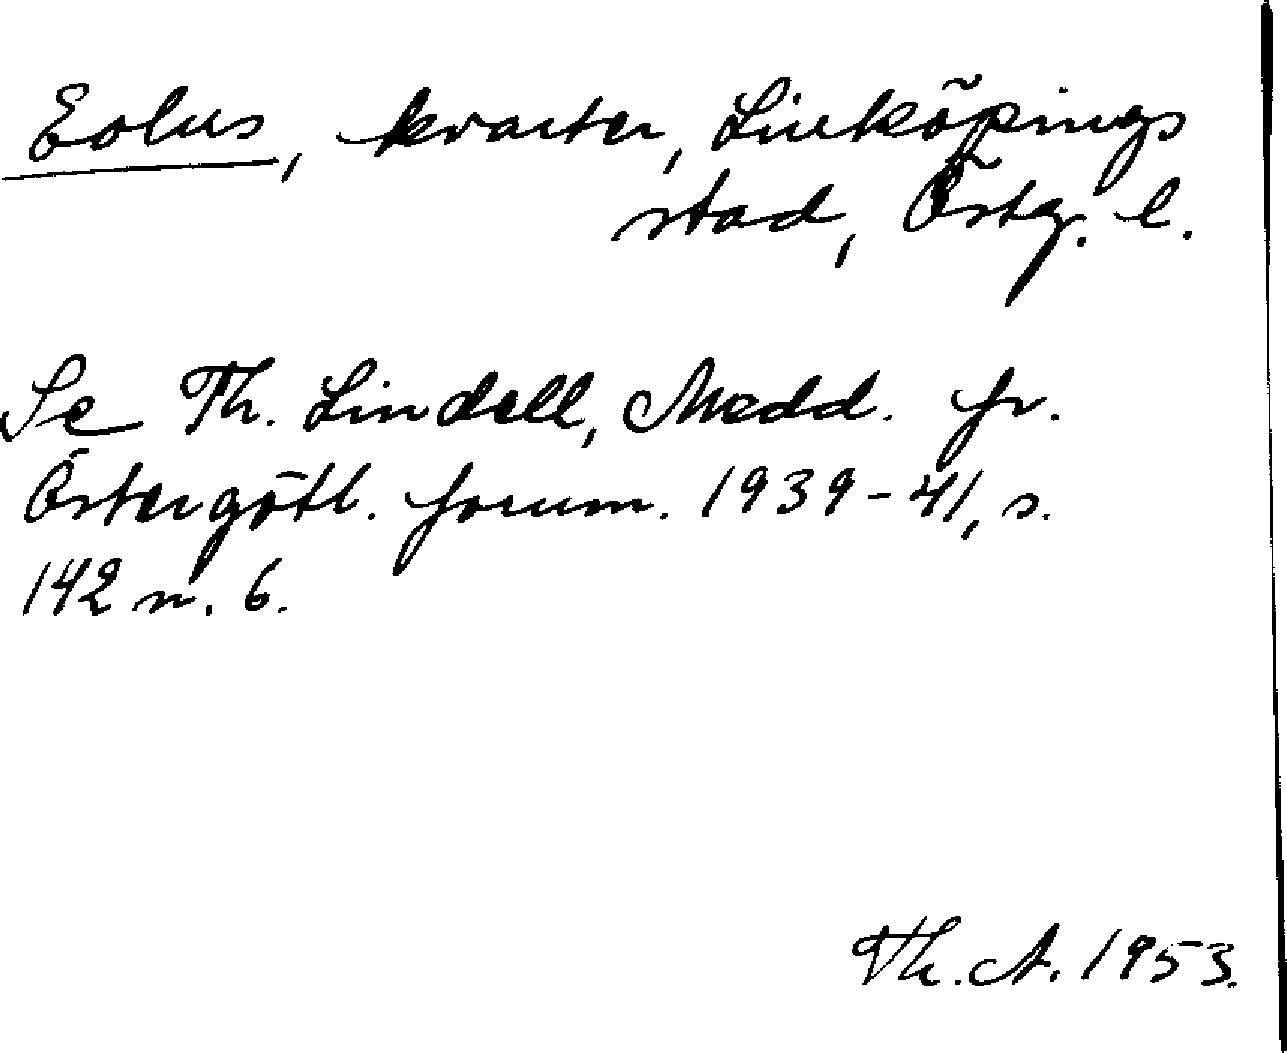 Eolus, kvarter, Linköpings
stad, Östg. l.
Se Th. Lindell, Medd. fr.
Östergötl. fornm. 1939-41, s.
142 n. 6.
Th. A. 1953.